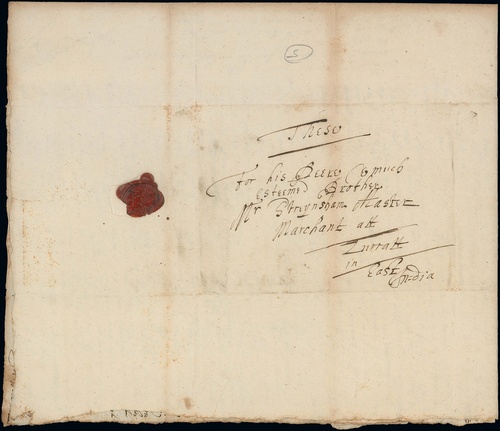 5
These
For his Deere & much
esteemed Brother
Mr Streynsham Master
Marchant att
Surratt
in
East India